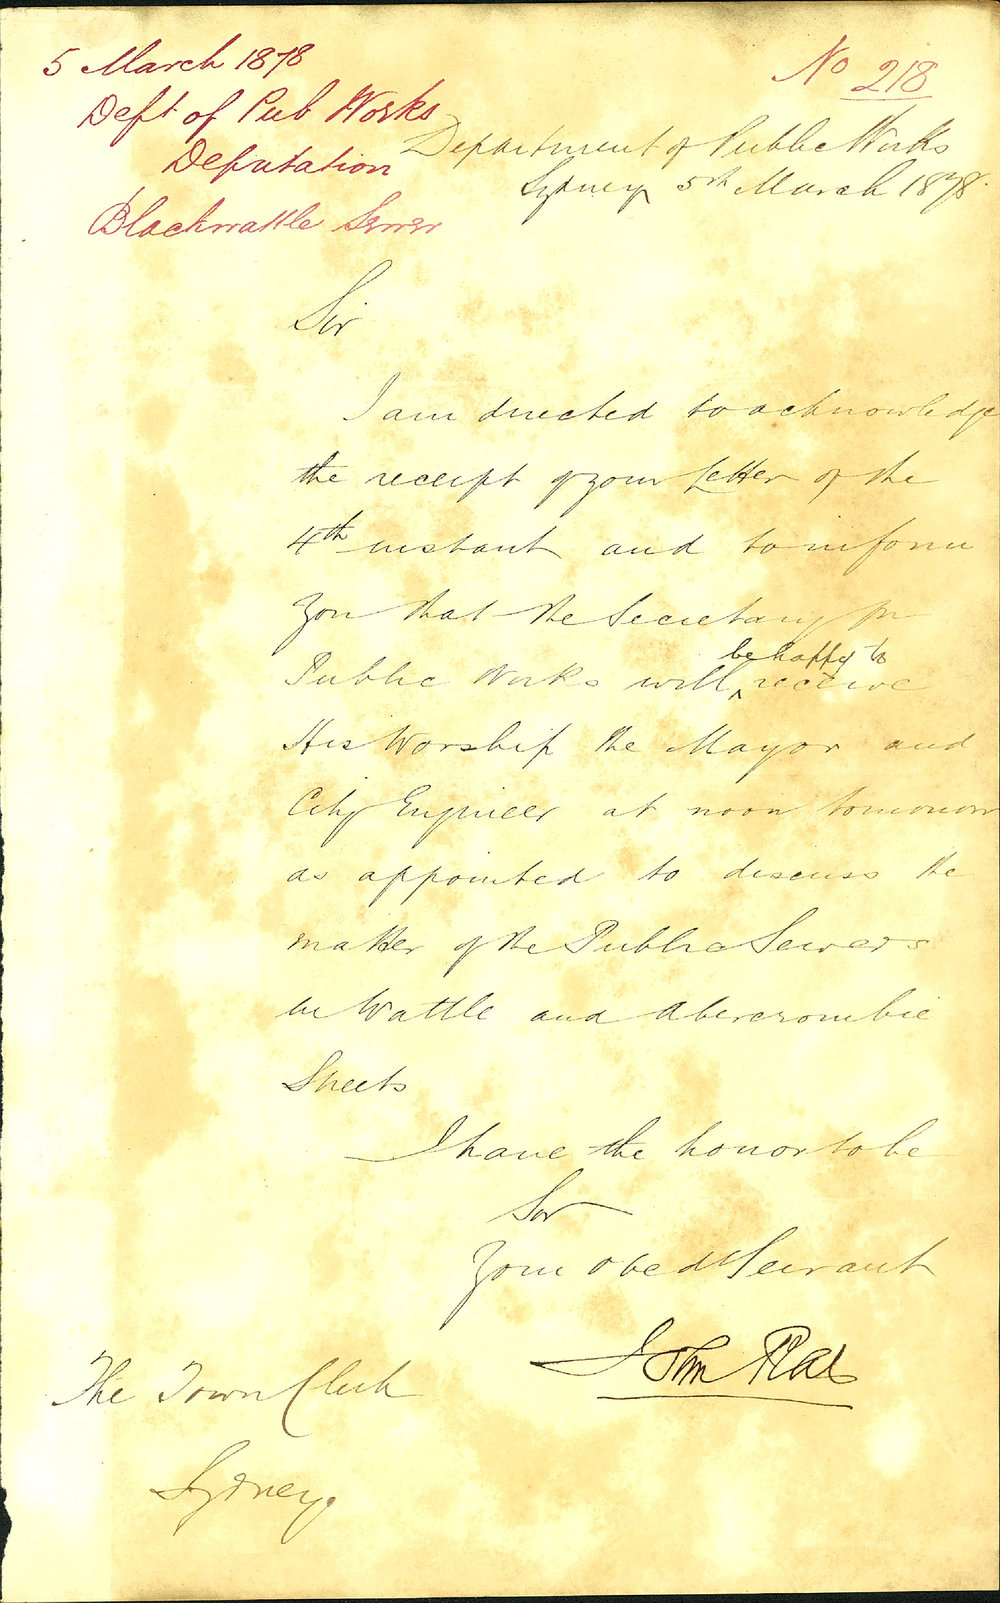 5 March 1878
No 218
Dept of Pub Works
Deputation
Blackwattle Sewer
Department of Public Works
Sydney 5th March 1878.
Sir
I am directed to acknowledge
the receipt of your Letter of the
4th instant and to inform
you that the Secretary for
be happy to
Public Works will ^ receive
His Worship the Mayor and
City Engineer at noon tomorrow
as appointed to discuss the
matter of the Public Sewers
in Wattle and Abercrombie
Streets
I have the honor to be
Sir
Your obedt Servant
John Rae
The Town Clerk
Sydney.